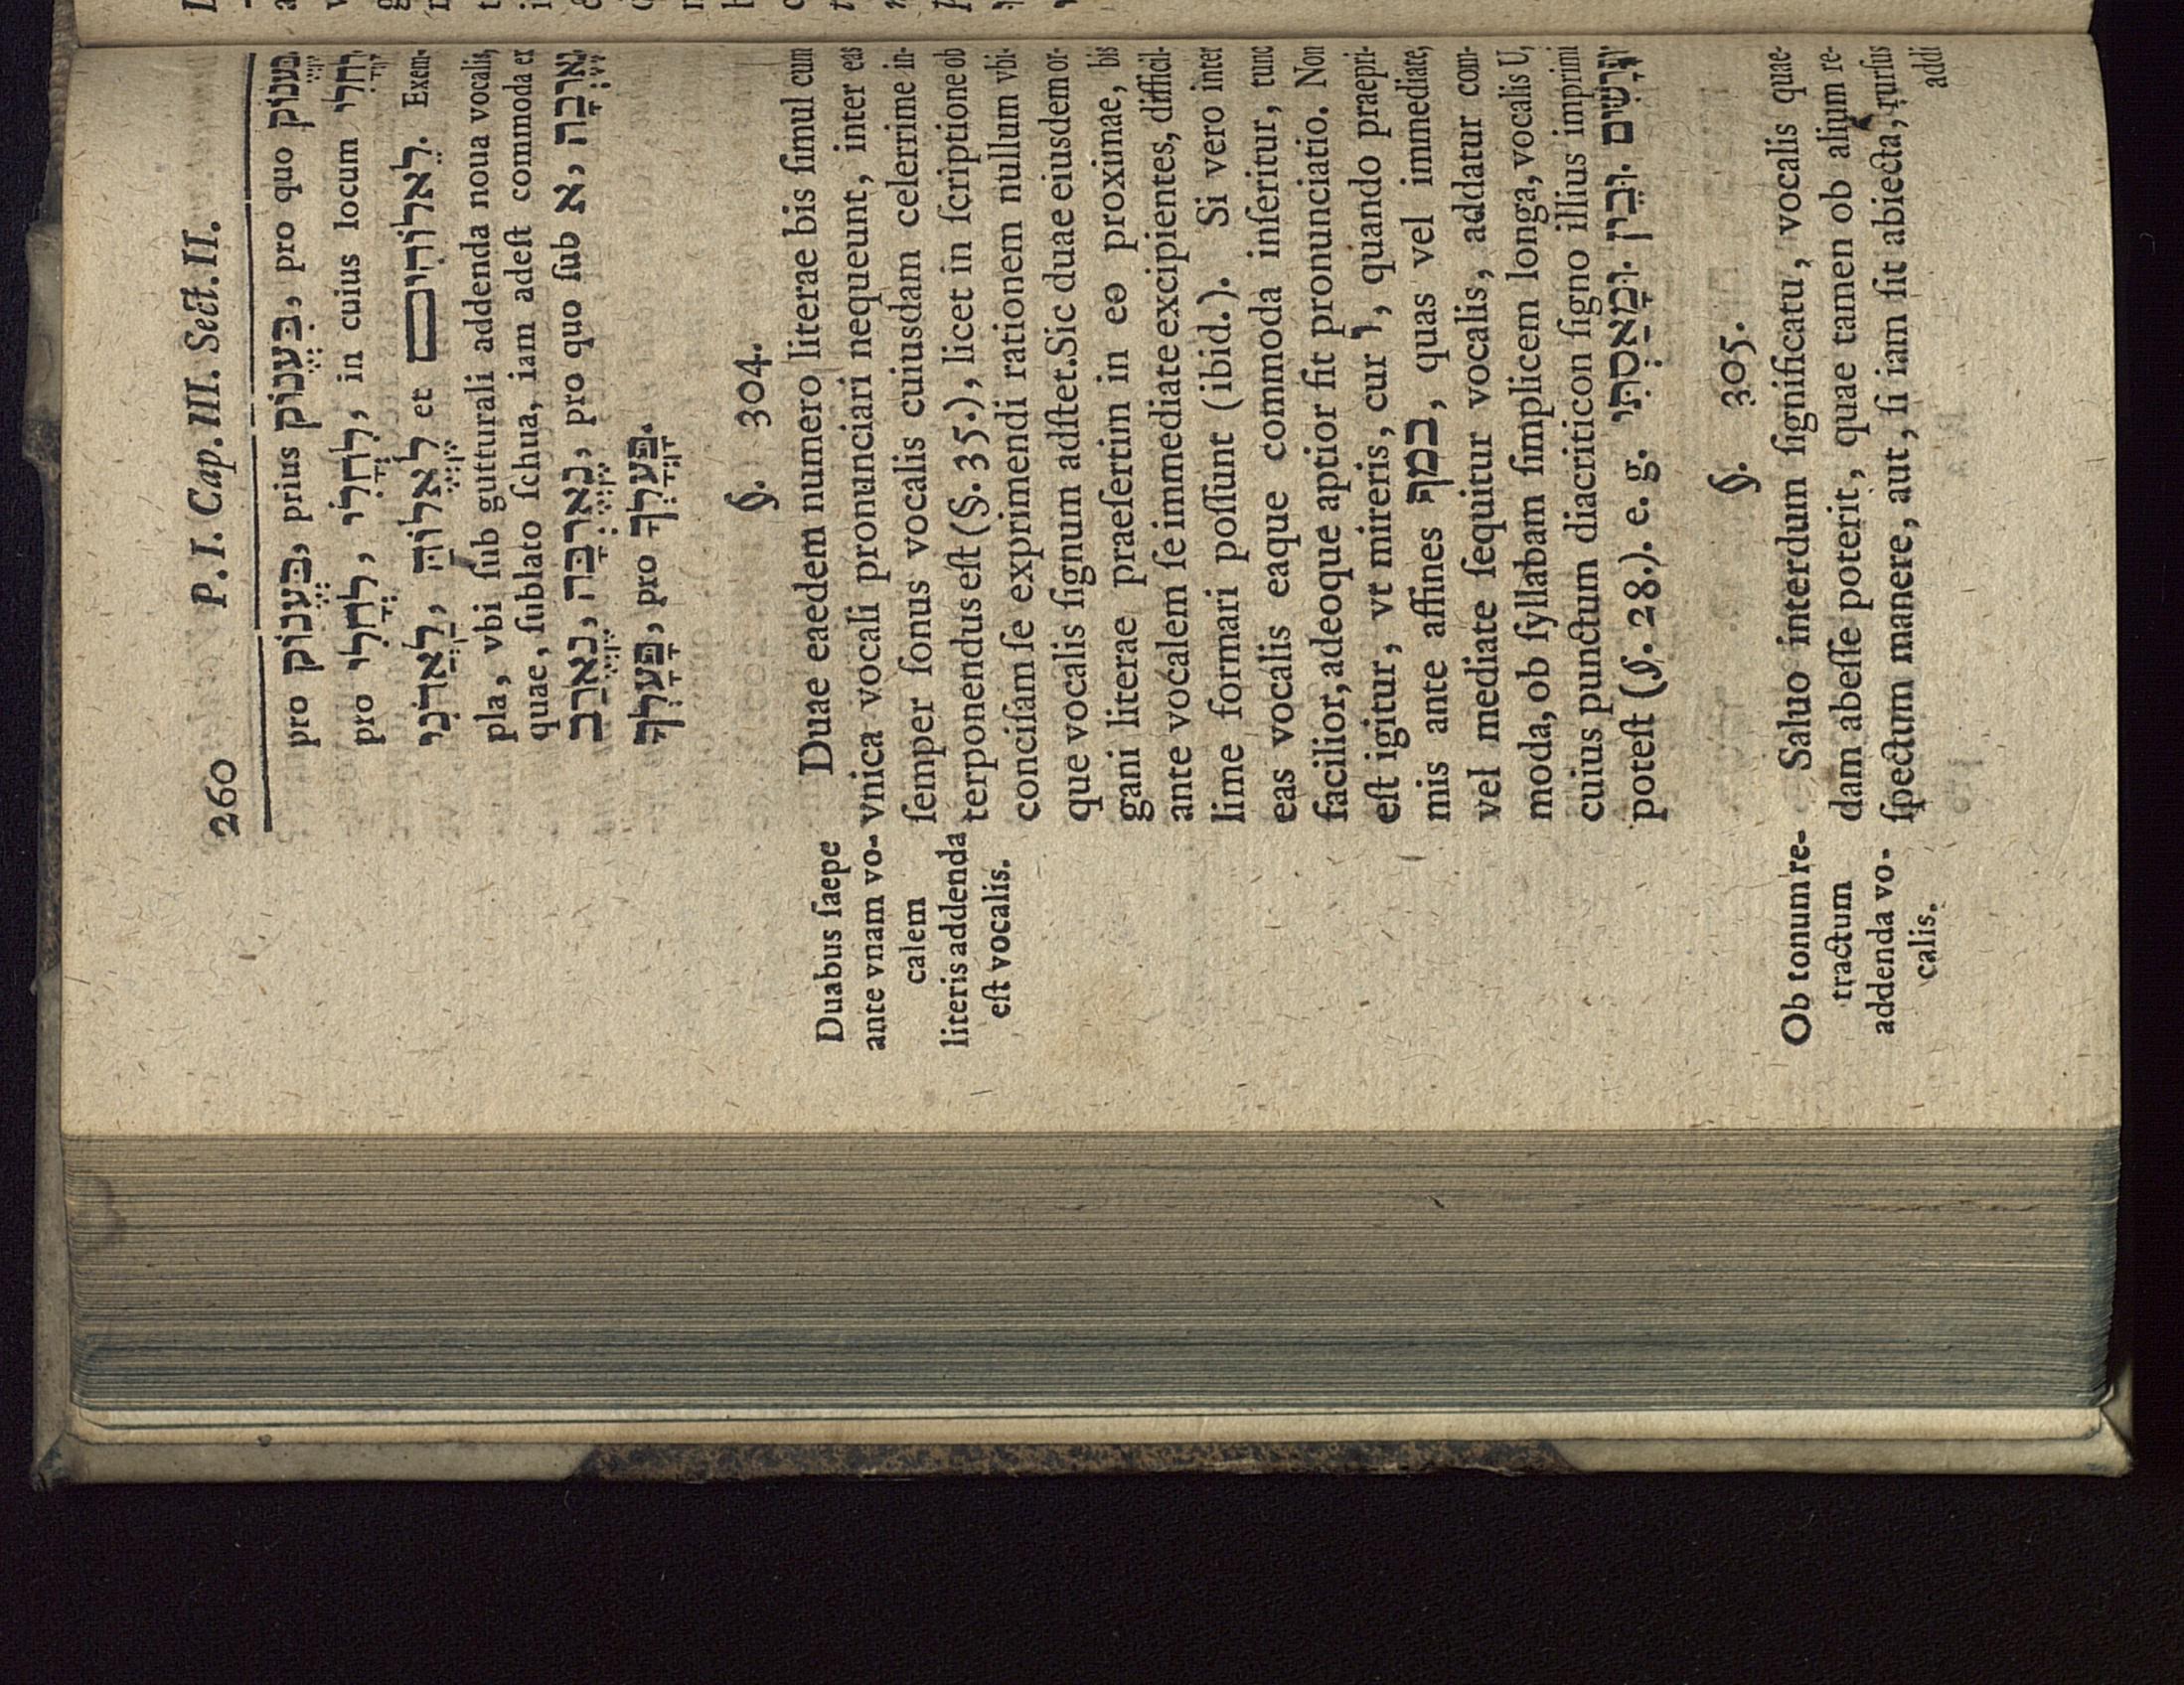 260 P. I. Cap. III. Sect. II.
pro בעכוק, prius בעכוק, pro quo בעכוק
pro לחלי, לחלי, in cuius locum לחלי
לאדני, לאלוה et לאלוהים. Exem-
pla, vbi ſub gutturali addenda noua vocalis,
quae, ſublato ſchua, iam adeſt commoda et
נארב, נארבה, pro quo ſub א,
פעלך, pro פעלך.
§. 304.
Duabus ſaepe
ante vnam vo-
calem
literis addenda
eſt vocalis.
Duae eaedem numero literae bis ſimul cum
vnica vocali pronunciari nequeunt, inter eas
ſemper ſonus vocalis cuiusdam celerrime in-
terponendus eſt (§. 35.), licet in ſcriptione ob
conciſam ſe exprimendi rationem nullum vbi-
que vocalis ſignum adſtet. Sic duae eiusdem or-
gani literae praeſertim in eo proximae, bis
ante vocalem ſe immediate excipientes, difficil-
lime formari poſſunt (ibid.). Si vero inter
eas vocalis eaque commoda inſeritur, tunc
facilior, adeoque aptior fit pronunciatio. Non
eſt igitur, vt mireris, cur ו, quando praepri-
mis ante affines במף, quas vel immediate,
vel mediate ſequitur vocalis, addatur com-
moda, ob ſyllabam ſimplicem longa, vocalis U,
cuius punctum diacriticon ſigno illius imprimi
poteſt (§. 28.). e. g. ומאסתי. ובין.
§. 305.
Ob tonum re-
tractum
addenda vo-
calis.
Saluo interdum ſignificatu, vocalis quae-
dam abeſſe poterit, quae tamen ob alium re-
ſpectum manere, aut, ſi iam ſit abiecta, rurſus
addi